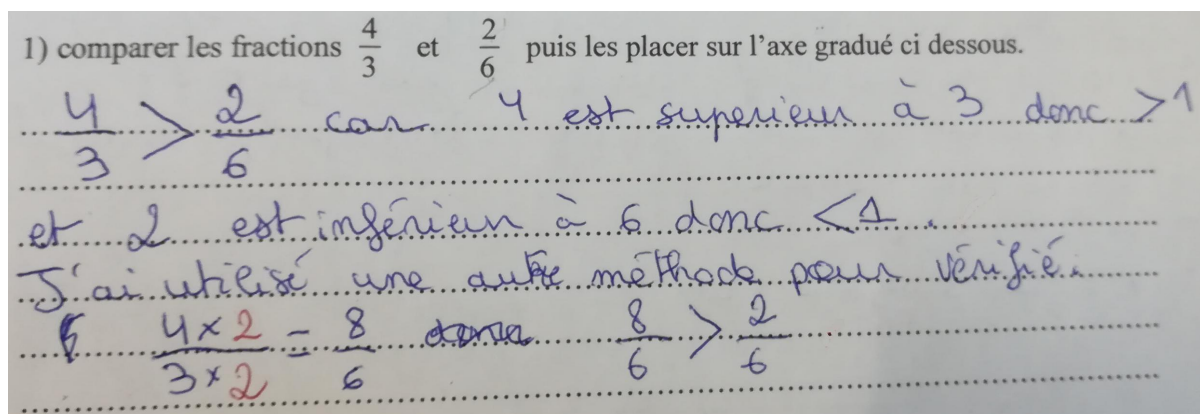 1) comparer les fractions 4/3 et 2/6 puis les placer sur l'axe gradué ci dessous.
4/3 > 2/6 car 4 est superieur à 3 donc > 1
et 2 est inférieur à 6 donc < 1.
J'ai utilisé une autre méthode pour vérifié.
4 × 2 / 3 × 2 = 8/6 donc 8/6 > 2/6